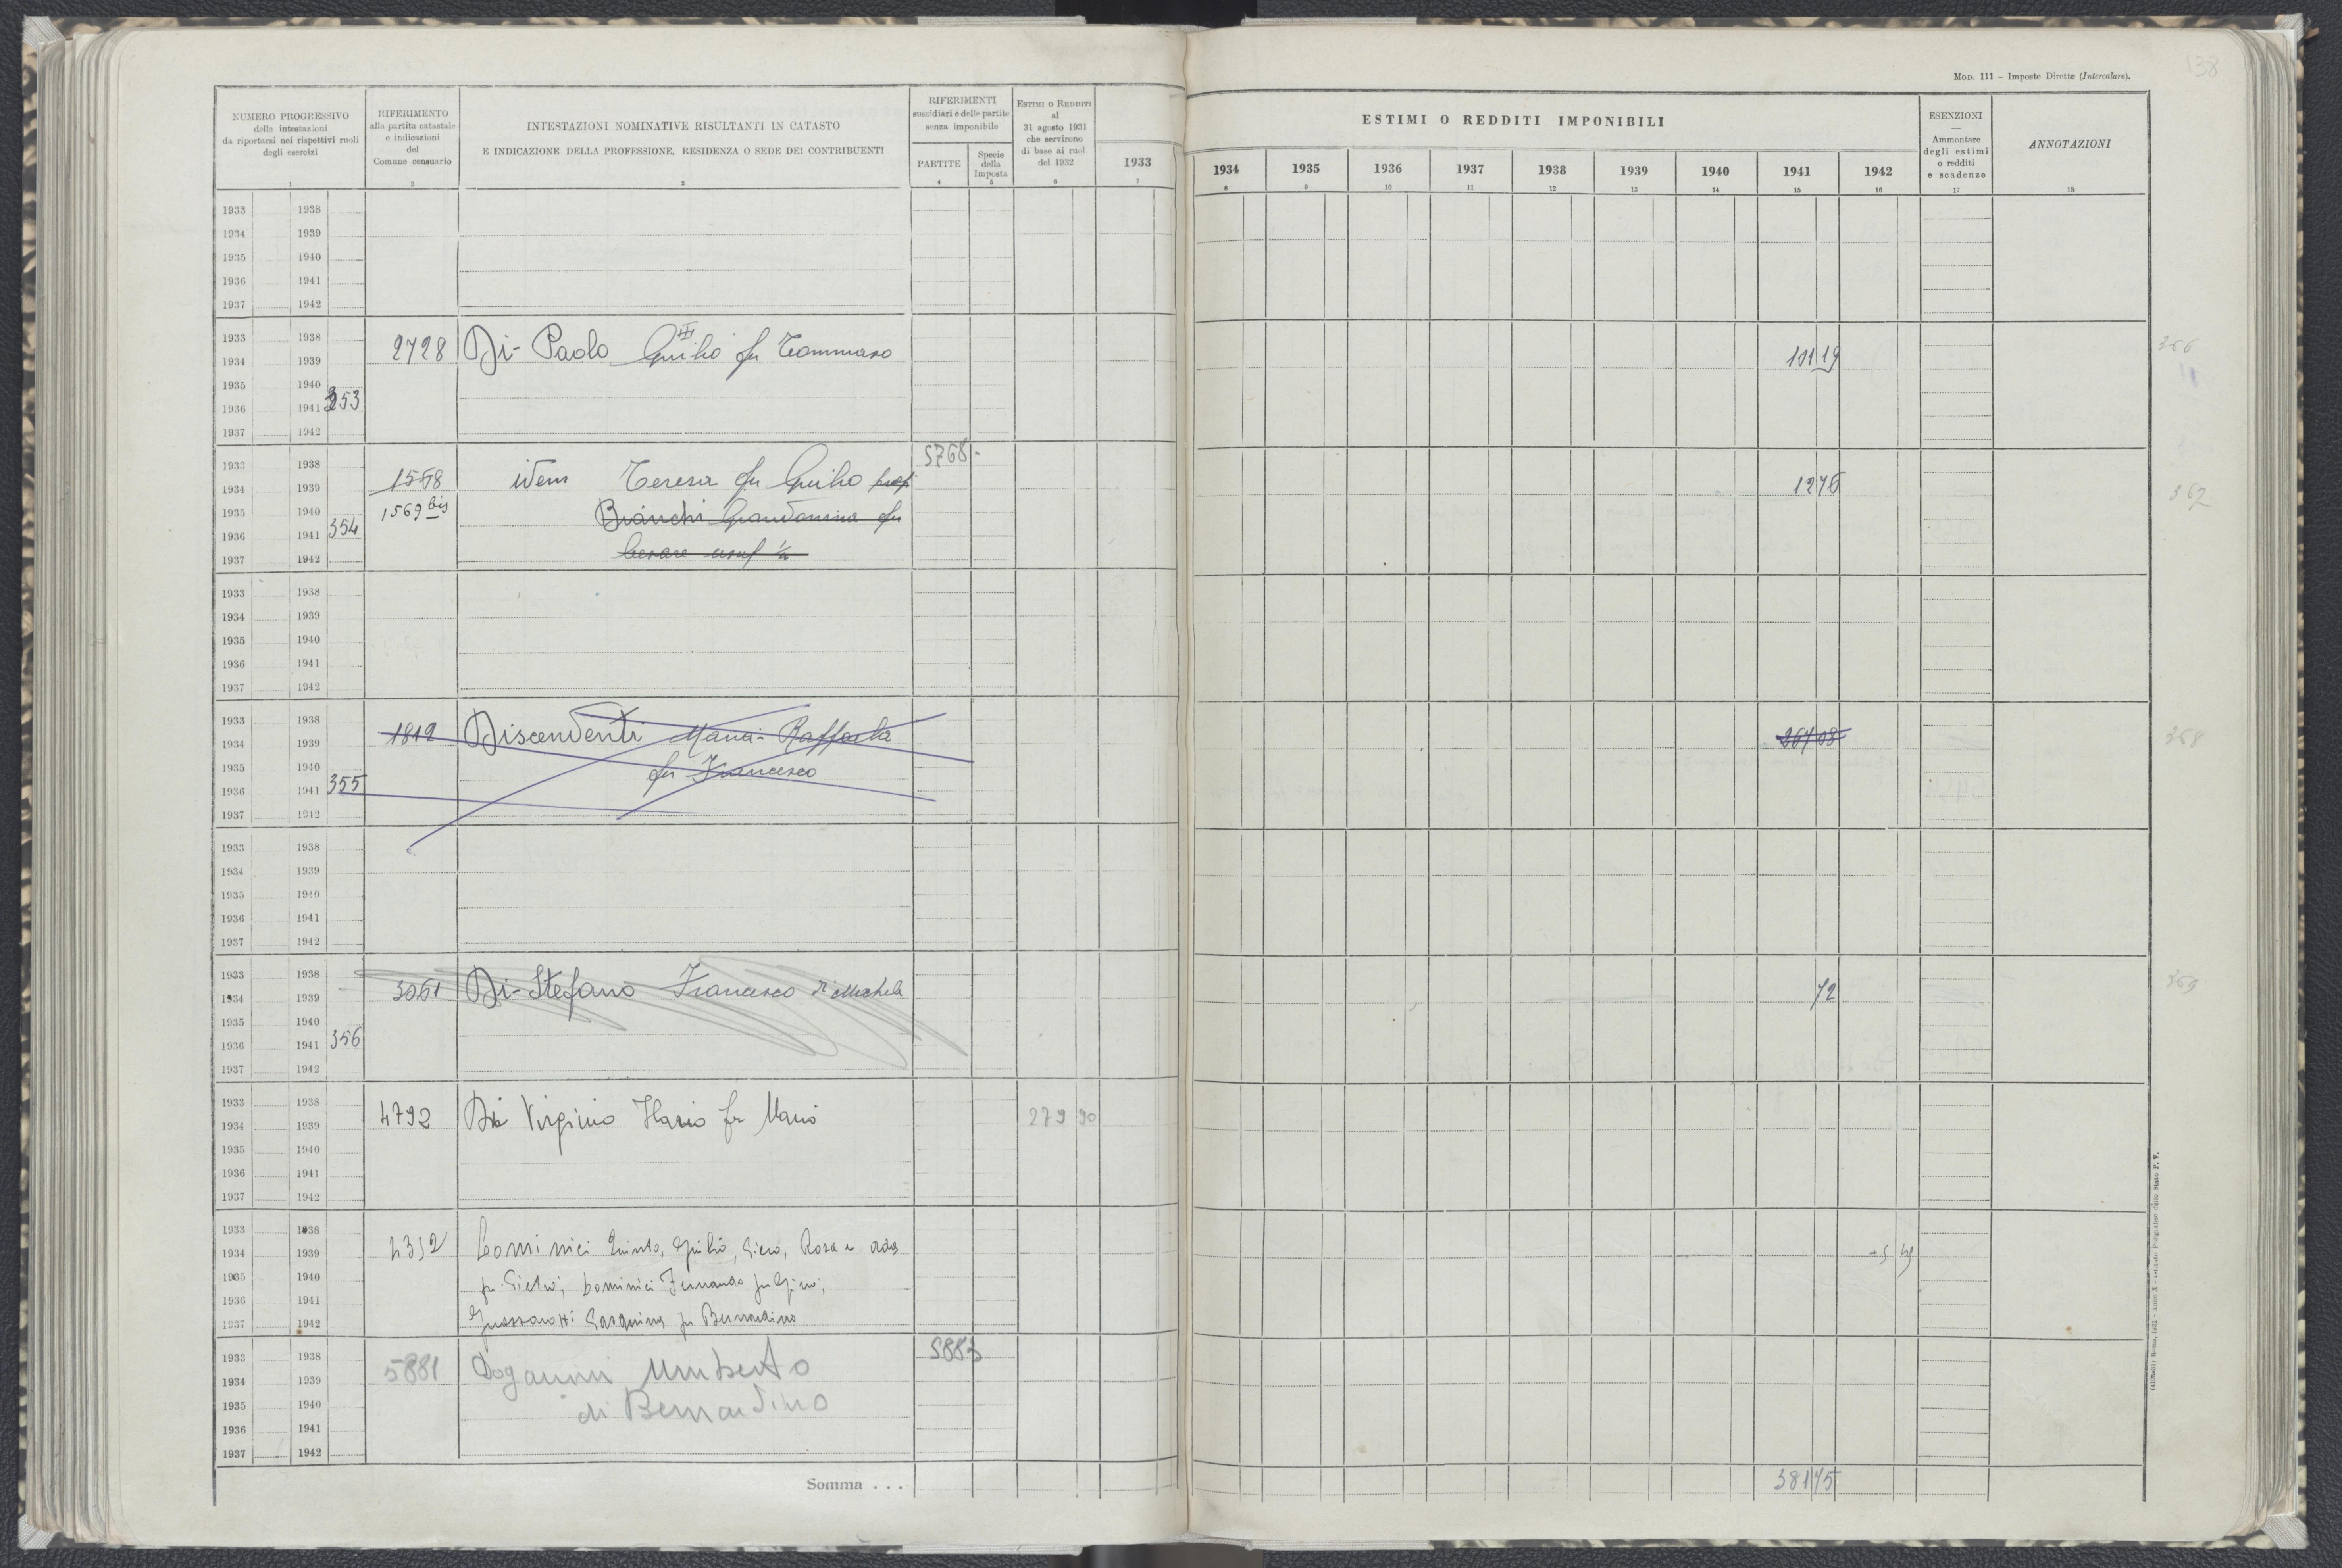 138
MOD. 111 - Imposte Dirette (Intercalare).
NUMERO PROGRESSIVO
delle intestazioni
da riportarsi nei rispettivi ruoli
degli esercizi
1
RIFERIMENTO
alla partita catastale
e indicazioni
del
Comune censuario
2
INTESTAZIONI NOMINATIVE RISULTANTI IN CATASTO
E INDICAZIONE DELLA PROFESSIONE, RESIDENZA O SEDE DEI CONTRIBUENTI
3
RIFERIMENTI
sussidiari e delle partite
senza imponibile
PARTITE
4
Specie
della
Imposta
5
ESTIMI O REDDITI
al
31 agosto 1931
che servirono
di base ai ruoli
del 1932
6
1933
7
ESTIMI O REDDITI IMPONIBILI
1934 1935 1936 1937 1938 1939 1940 1941 1942
8 9 10 11 12 13 14 15 16
ESENZIONI
Ammontare
degli estimi
o redditi
e scadenze
17
ANNOTAZIONI
18
1933 1938
1934 1939
1935 1940
1936 1941
1937 1942
1933 1938
1934 1939 2728 Di-Paolo Giulio III fu Tommaso 101 19 366
1935 1940
1936 1941 353
1937 1942
1933 1938 5768
1934 1939 1568 idem Teresa fu Giulio prop 12 76 367
1935 1940 1569 bis Bianchi fu
1936 1941 354
1937 1942 Cesare usuf ½
1933 1938
1934 1939
1935 1940
1936 1941
1937 1942
1933 1938
1934 1939 1812 Discendenti Maria-Raffaela 267 08 368
1935 1940 fu Francesco
1936 1941 355
1937 1942
1933 1938
1934 1939
1935 1940
1936 1941
1937 1942
1933 1938
1934 1939 3061 Di-Stefano Francesco di Michele 72 369
1935 1940
1936 1941 356
1937 1942
1933 1938
1934 1939 4792 Di Virginio Ilario fu Mario 279 90
1935 1940
1936 1941
1937 1942
1933 1938
1934 1939 Dominici Quinto, Giulio, Piero, Rosa e
1935 1940 fu Pietro, Dominici Fernando fu
1936 1941
1937 1942 Pasquina fu Bernardino
1933 1938 5883
1934 1939 5881 Doganini Umberto
1935 1940 di Bernardino
1936 1941
1937 1942
Somma . . . 381 75